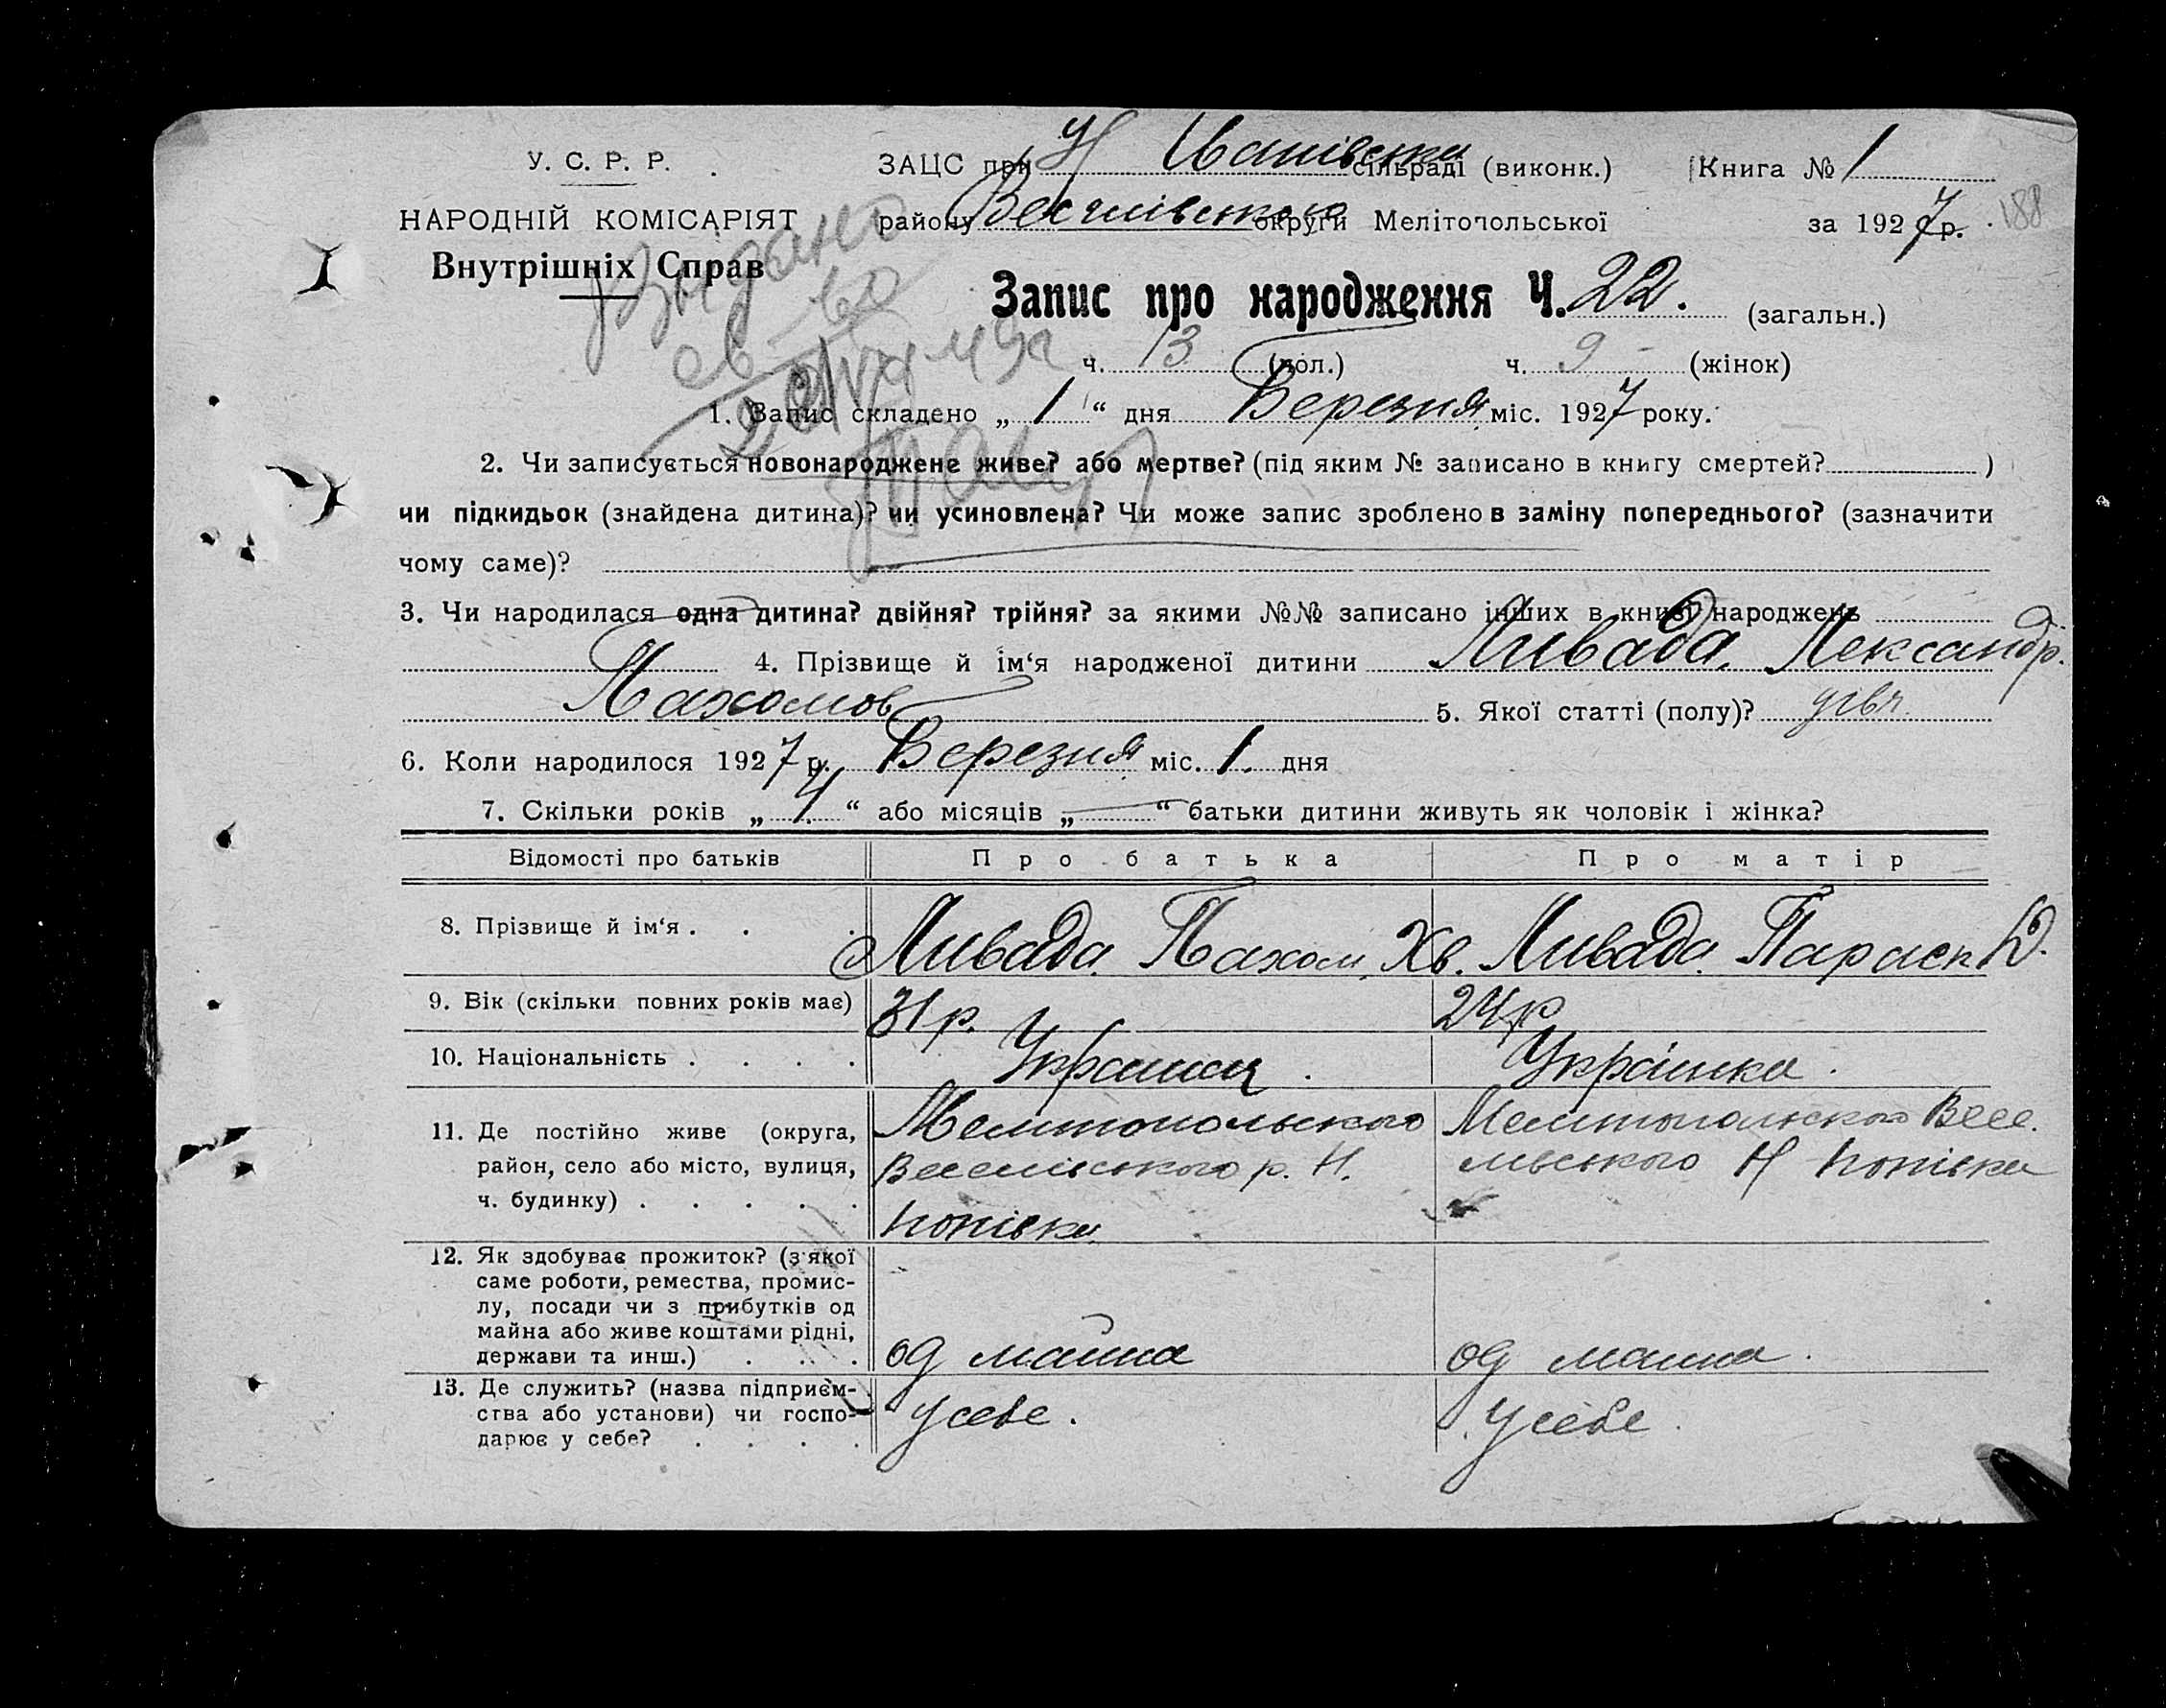 У. С. Р. Р.
ЗАЦС при Н Иванівски сільраді (виконк.) Книга № 1
НАРОДНІЙ КОМІСАРІЯТ
району Веселівського округи Мелітопольської за 1927 р. 188
Внутрішніх Справ
Видано
Запис про народження Ч. 22. (загальн.)
ч. 13 (чол.) ч. 9 (жінок)
1. Запис складено „ 1 “ дня Березня міс. 1927 року.
2. Чи записується новонароджене живе? або мертве? (під яким № записано в книгу смертей? )
чи підкидьок (знайдена дитина)? чи усиновлена? Чи може запис зроблено в заміну попереднього? (зазначити
чому саме)?
3. Чи народилася одна дитина? двійня? трійня? за якими №№ записано інших в книзі народжень
4. Прізвище й ім‘я народженої дитини Ливада Лександр.
Пахомов 5. Якої статті (полу)?
6. Коли народилося 1927 р. Березня міс. 1. дня
7. Скільки років „ “ або місяців „ — “ батьки дитини живуть як чоловік і жінка?
Відомості про батьків Про батька Про матір
8. Прізвище й ім‘я . . . Ливада Пахом Хв. Ливада Параск Д.
9. Вік (скільки повних років має) 31 р. 24 р
10. Національність . . . . Украинц . Украінка .
11. Де постійно живе (округа, Мелитопольского Мелитопольского Весе.
район, село або місто, вулиця, Веселівського р. Н. лівського Н Копівка
ч. будинку) . . . . . Копівка
12. Як здобуває прожиток? (з якої
саме роботи, ремества, промис-
лу, посади чи з прибутків од
майна або живе коштами рідні,
держави та инш.) . . . . од майна од маина .
13. Де служить? (назва підприєм-
ства або установи) чи госпо- у себе . у себе .
дарює у себе? . . . .